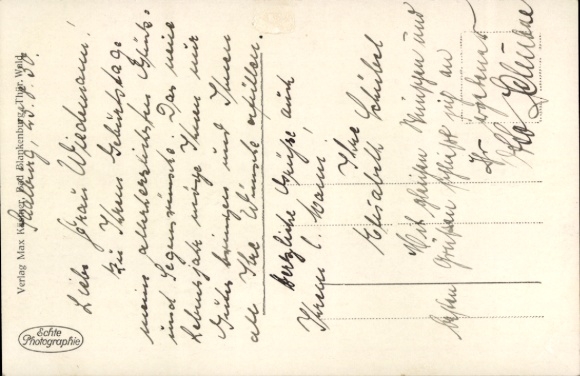 Verlag Max Kästner, Bad Blankenburg, Thür. Wald
Saalburg, 23.8.30.
Liebe Frau Wiedemann!
Zu Ihrem Geburtstage
meine allerherzlichsten Glück-
und Segenswünsche. Das neue
Lebensjahr möge Ihnen nur
Gutes bringen und Ihnen
alle Ihre Wünsche erfüllen.
Herzliche Grüße auch
Ihrem l. Mann!
Ihre
Elisabeth Schübel
Mit gleichen Wünschen und
besten Grüßen schließt sich an
Ihr
Echte
Photographie